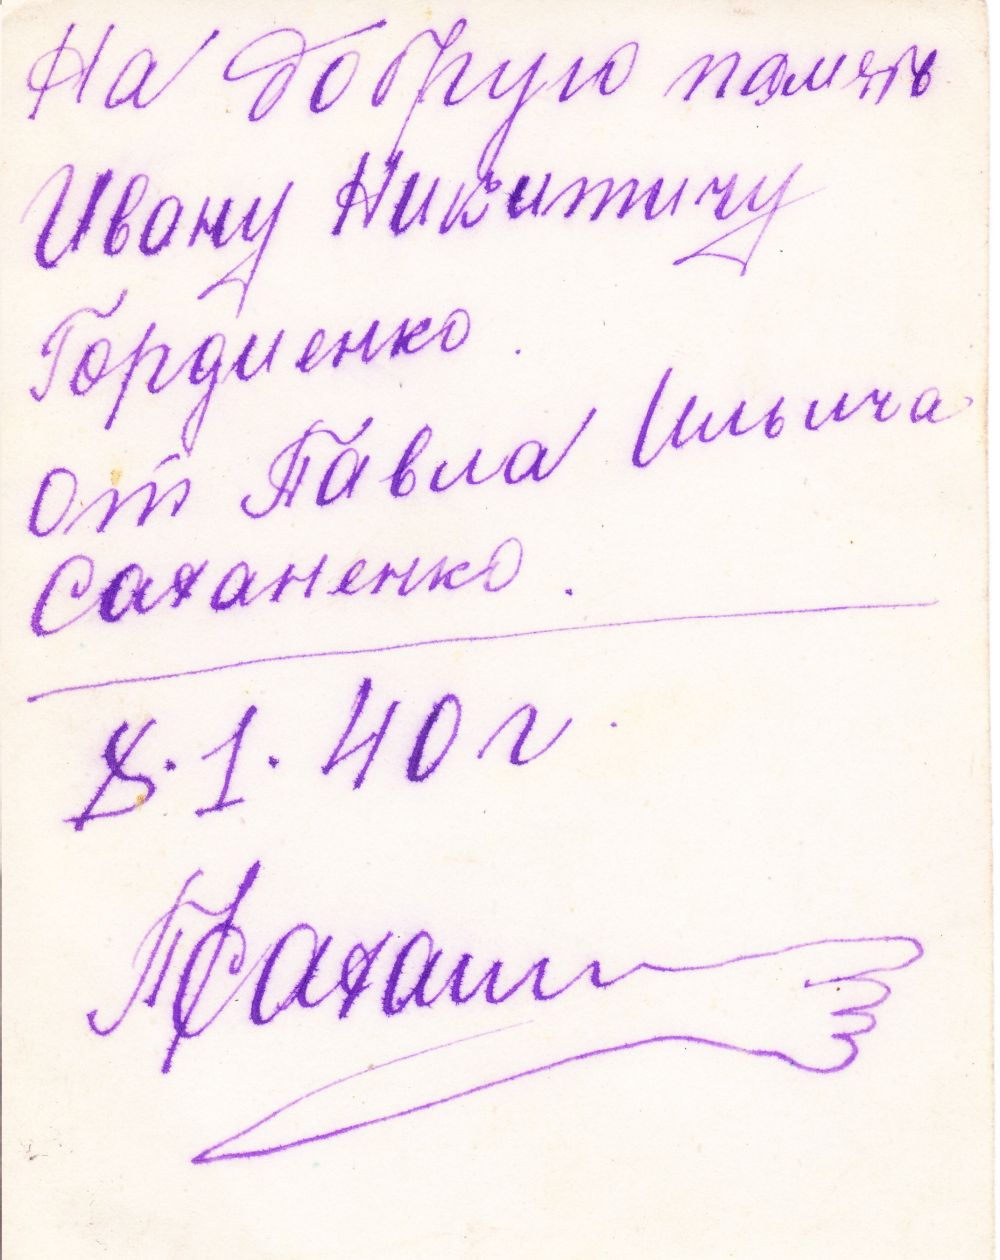 На добрую память
Ивану Никитичу
Гордиенко.
От Павла Ильича
Саханенко.
8.1.40 г.
ПСахан